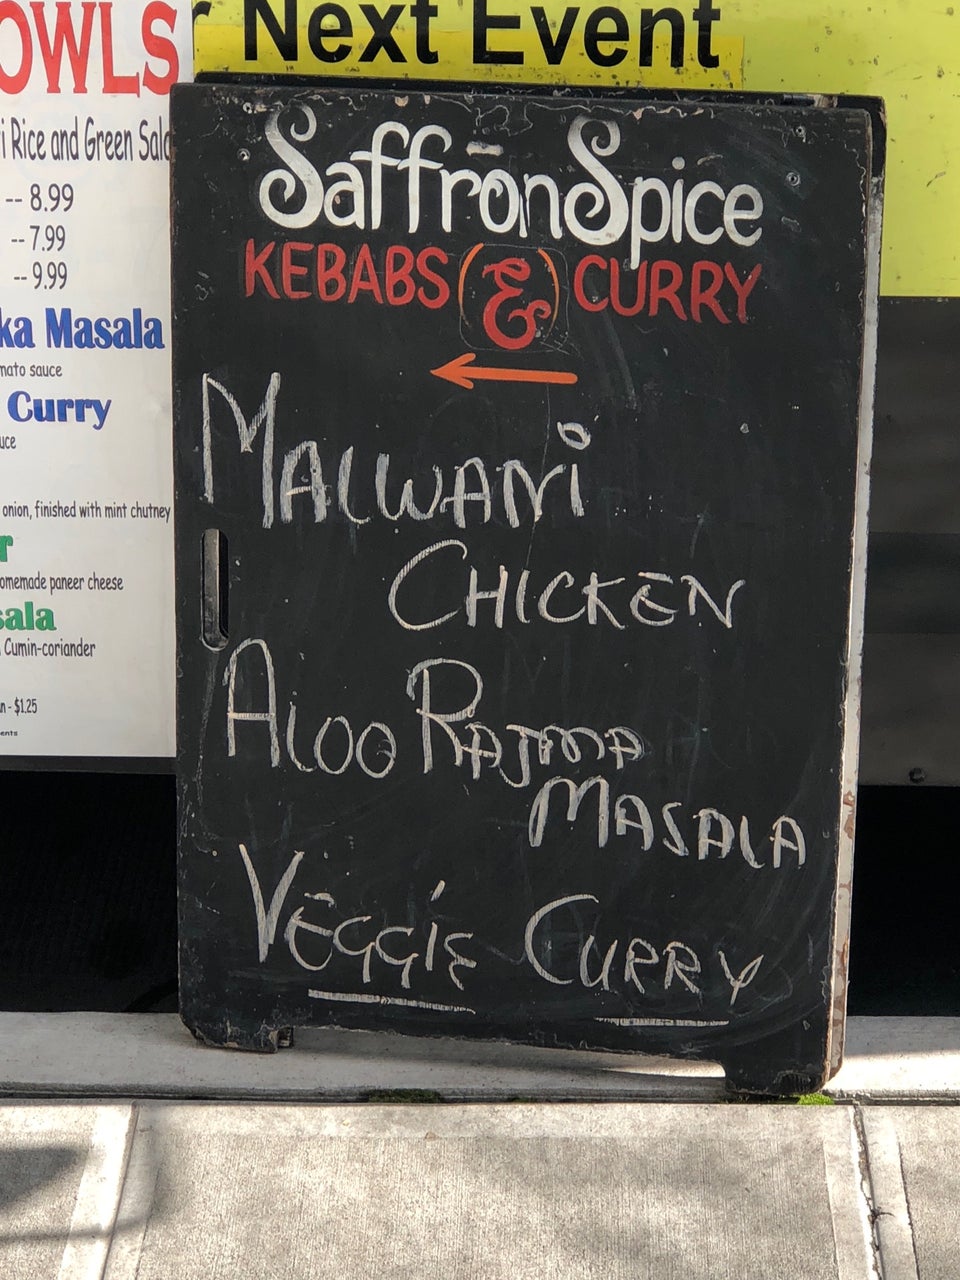 OWLS
i Rice and Green Sala
-- 8.99
-- 7.99
-- 9.99
ka Masala
mato sauce
Curry
uce
onion, finished with mint chutney
r
omemade paneer cheese
sala
Cumin-coriander
n - $1.25
ents
r Next Event
Saffron Spice
KEBABS (&) CURRY
MALWANI
CHICKEN
ALOO RAJMA
MASALA
VEGGIE CURRY